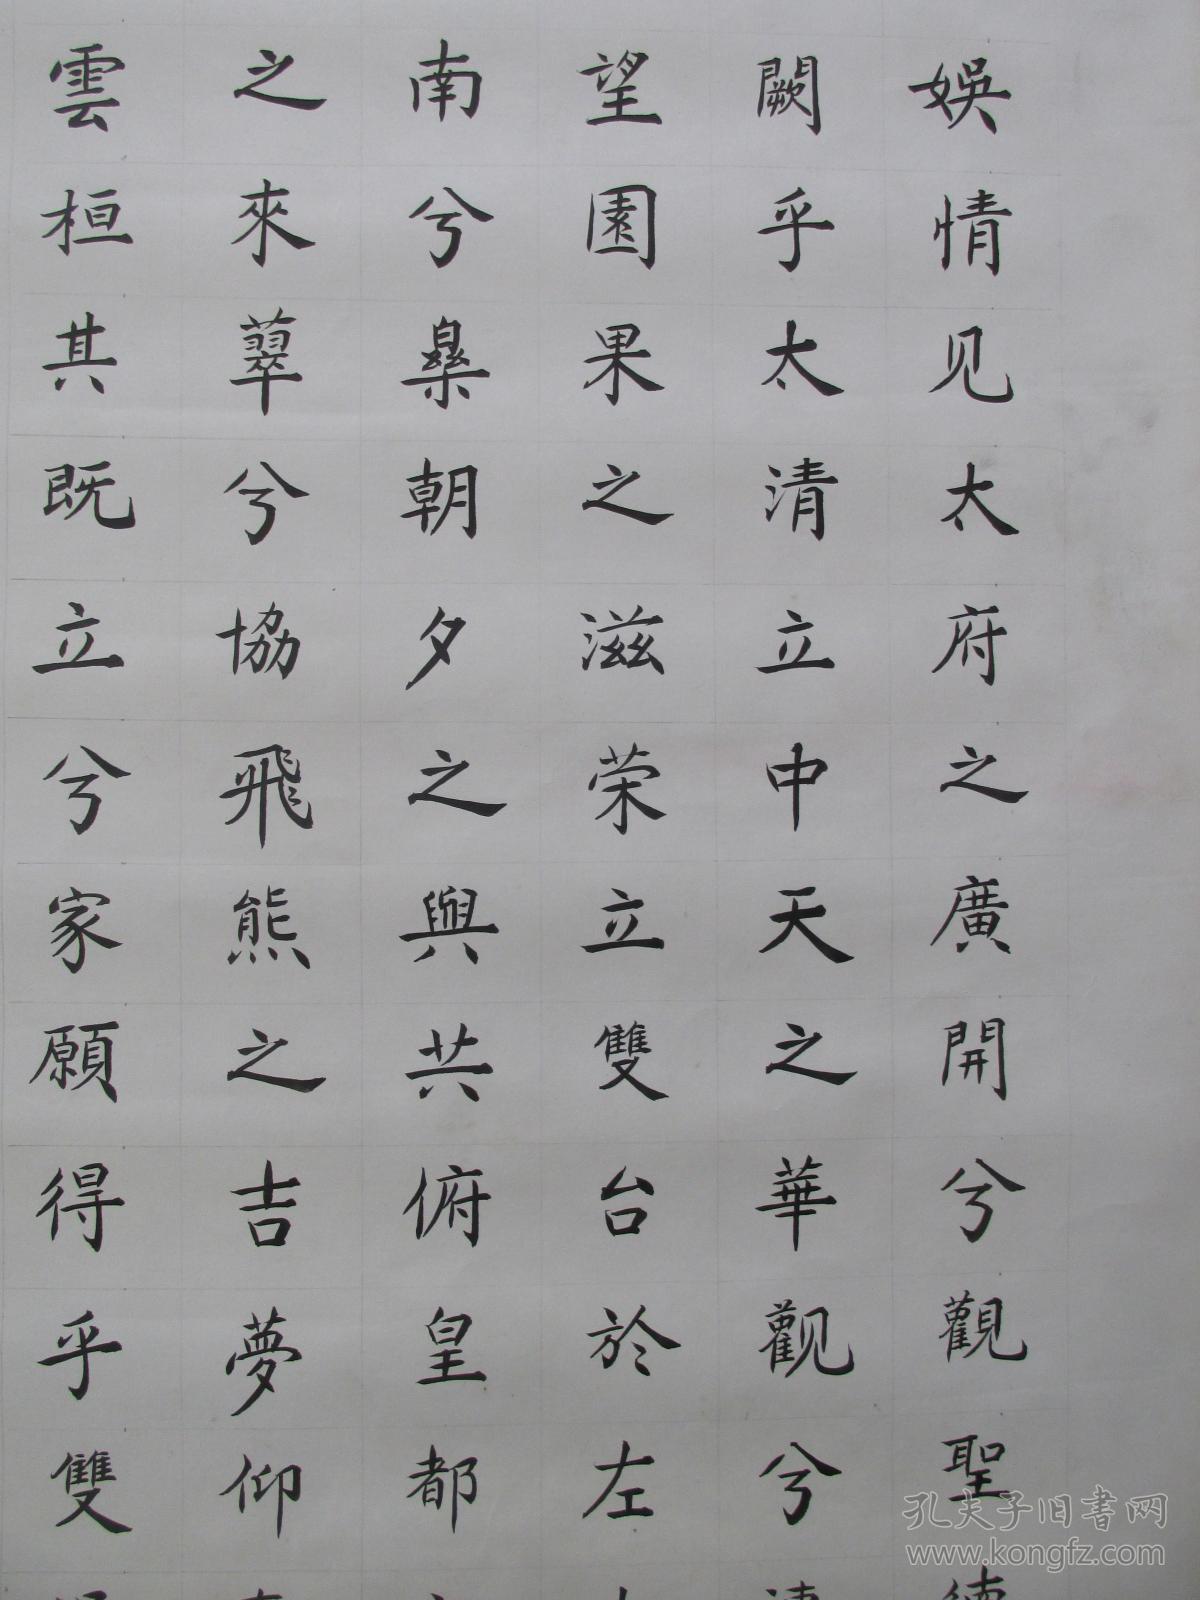 娛情见太府之廣開兮觀聖
闕乎太清立中天之華觀兮
望園果之滋荣立雙台於左
南兮櫐朝夕之與共俯皇都
之來萃兮協飛熊之吉夢仰
雲桓其既立兮家願得乎雙
孔夫子旧书网
www.kongfz.com